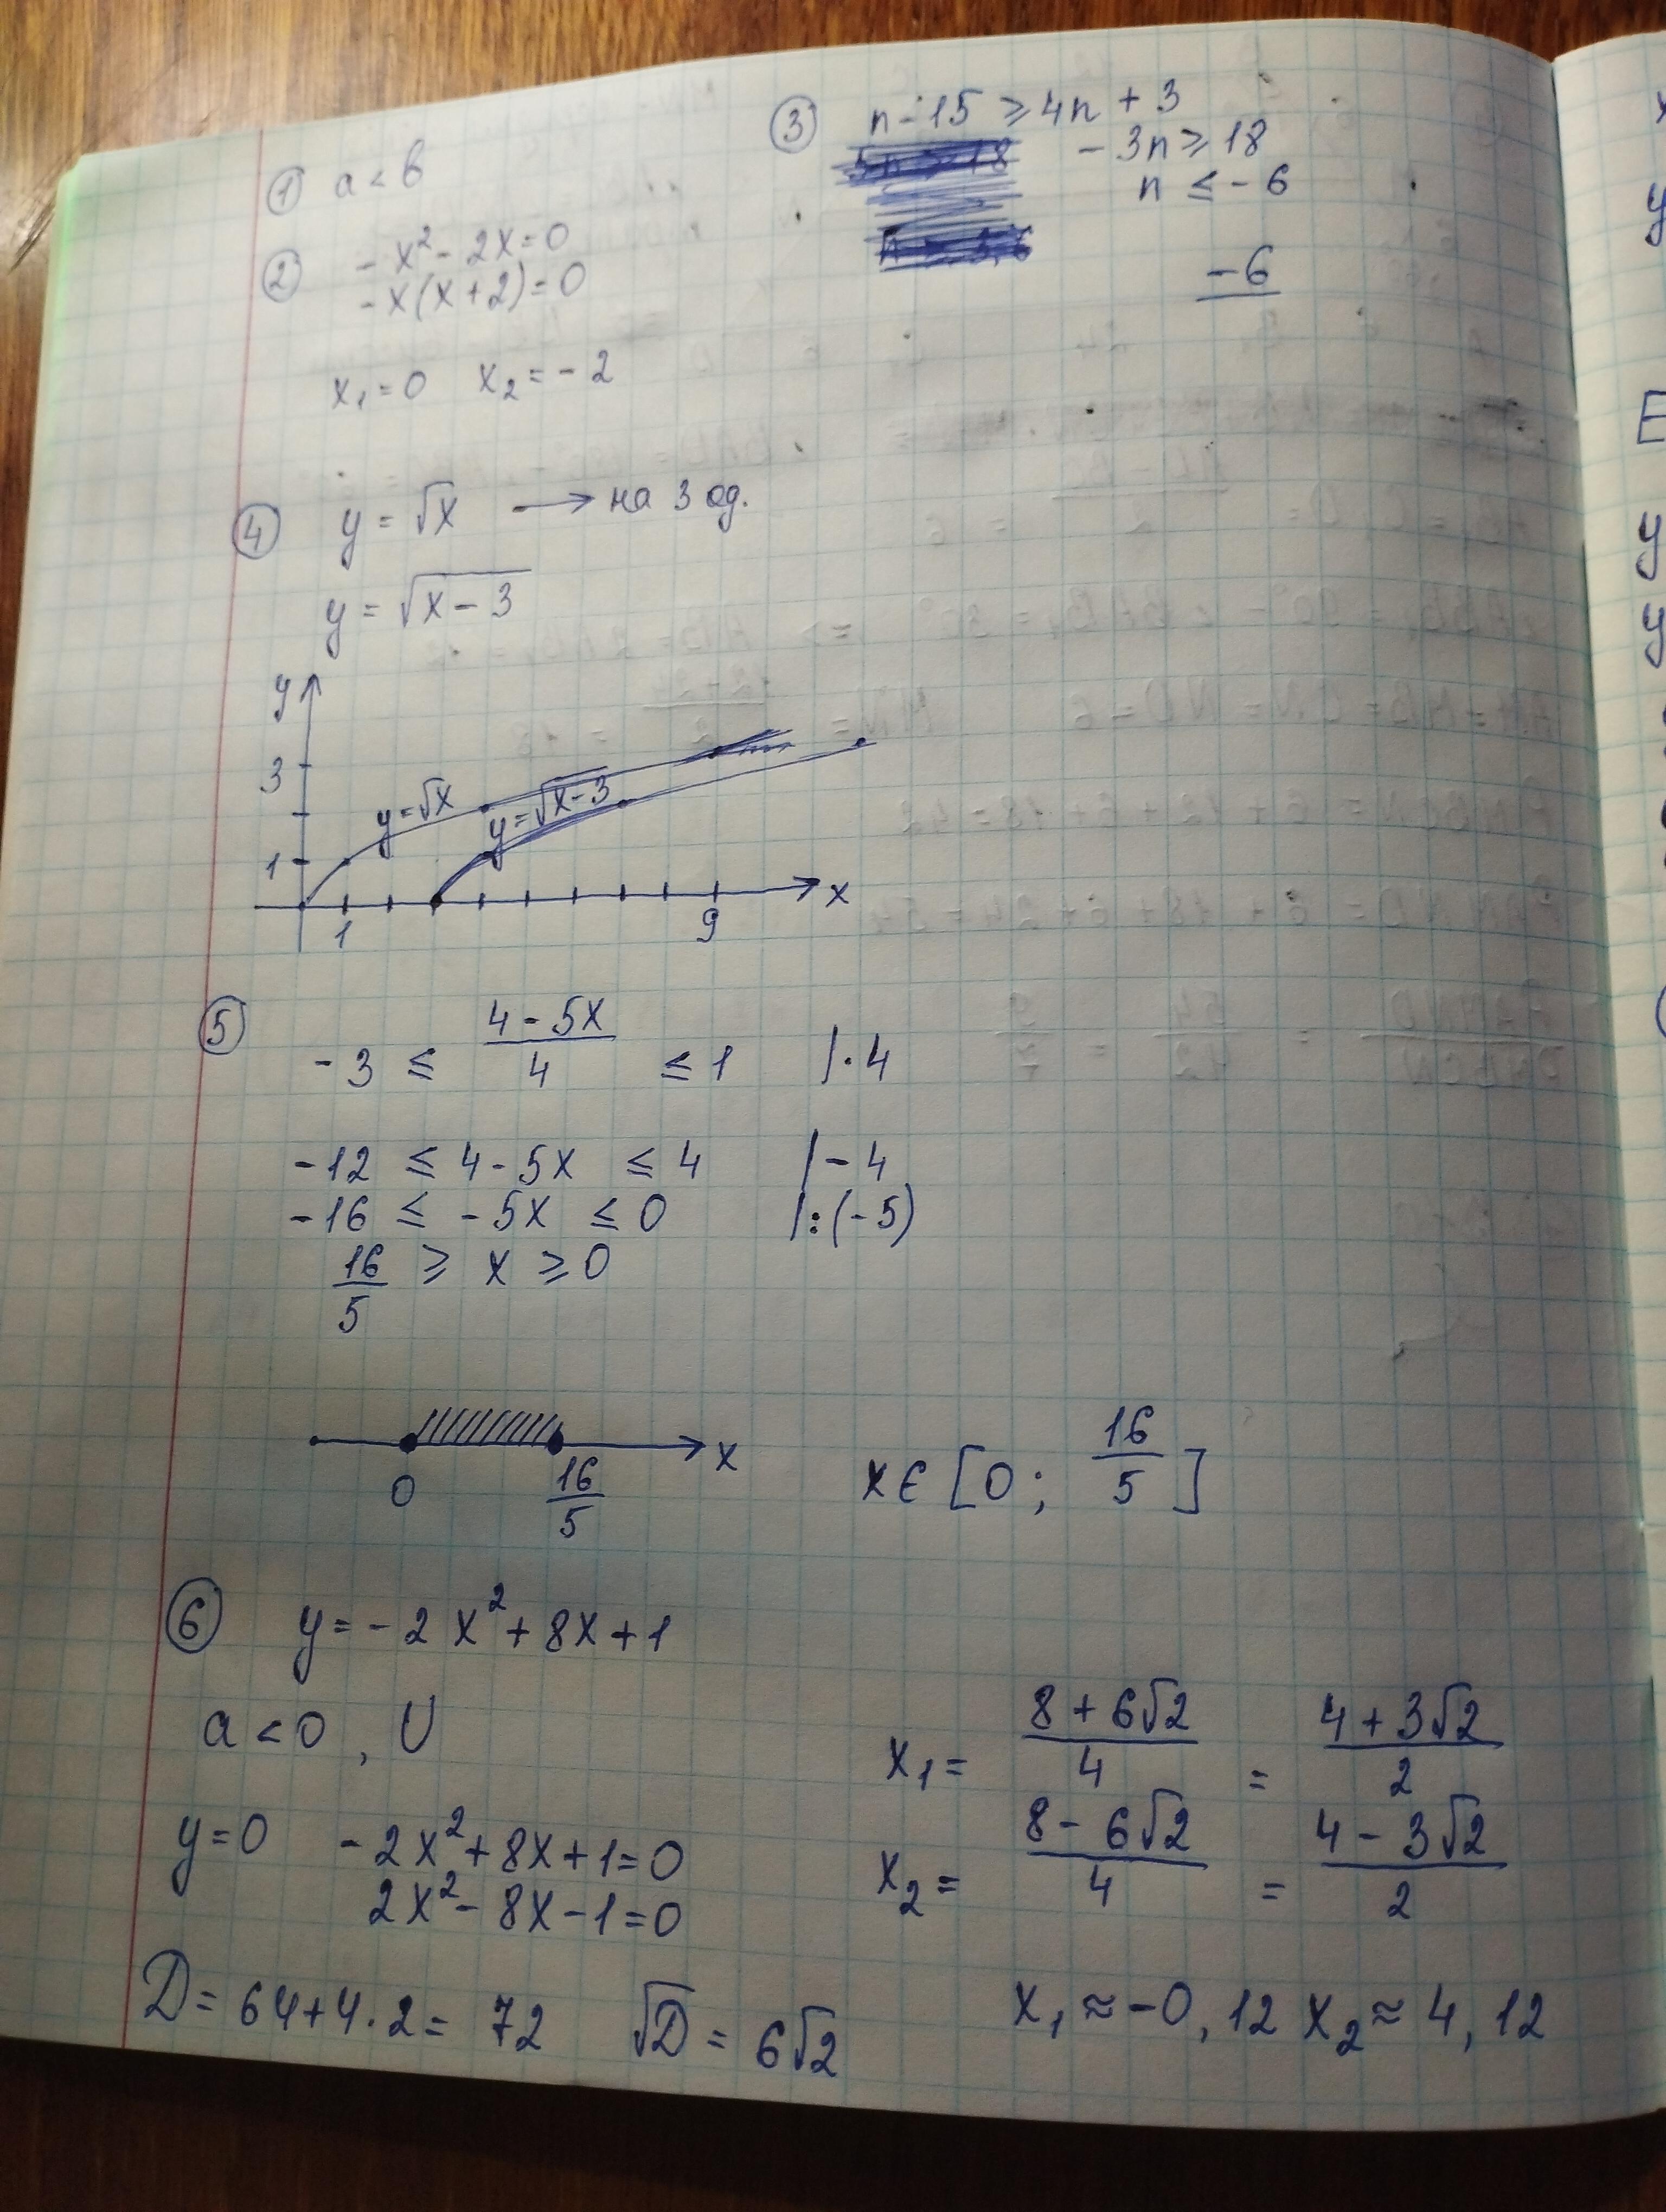 ① a < b
② - x² - 2x = 0
- x(x + 2) = 0
x₁ = 0 x₂ = - 2
③ n - 15 ⩾ 4n + 3
- 3n ⩾ 18
n ≤ - 6
-6
④ y = √x → на 3 од.
y = √(x - 3)
y
3
y = √x
y = √(x-3)
1
x
1 9
⑤ - 3 ≤ (4 - 5x)/4 ≤ 1 | · 4
- 12 ≤ 4 - 5x ≤ 4 | - 4
- 16 ≤ - 5x ≤ 0 | : (-5)
16/5 ⩾ x ⩾ 0
0 16/5 x
x ∈ [0; 16/5]
⑥ y = - 2x² + 8x + 1
a < 0, U
y = 0 - 2x² + 8x + 1 = 0
2x² - 8x - 1 = 0
D = 64 + 4 · 2 = 72 √D = 6√2
x₁ = (8 + 6√2)/4 = (4 + 3√2)/2
x₂ = (8 - 6√2)/4 = (4 - 3√2)/2
x₁ ≈ -0,12 x₂ ≈ 4,12